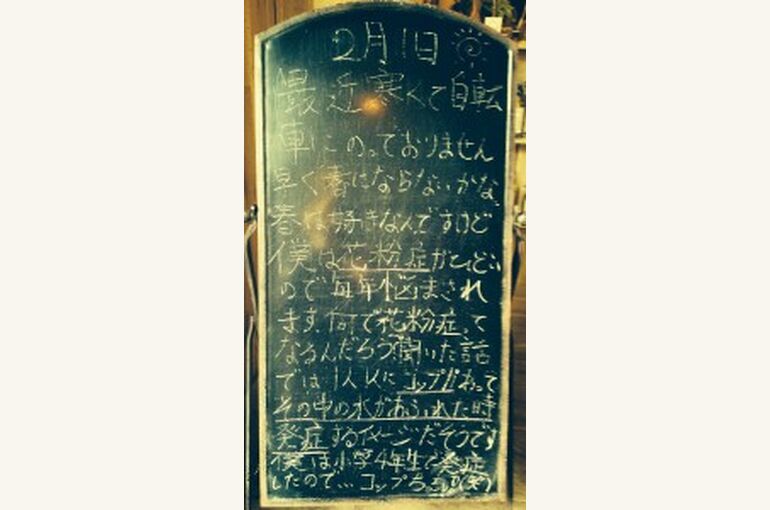 2月1日
最近寒くて自転
車にのっておりません
早く春にならないかな。
春は好きなんですけど
僕は花粉症がひどい
ので毎年悩まされ
ます。何で花粉症って
なるんだろう?聞いた話
では1人1人にコップがあって
その中の水があふれた時
発症するイメージだそうです
僕は小学4年生で発症
したので…コップちっさ(笑)